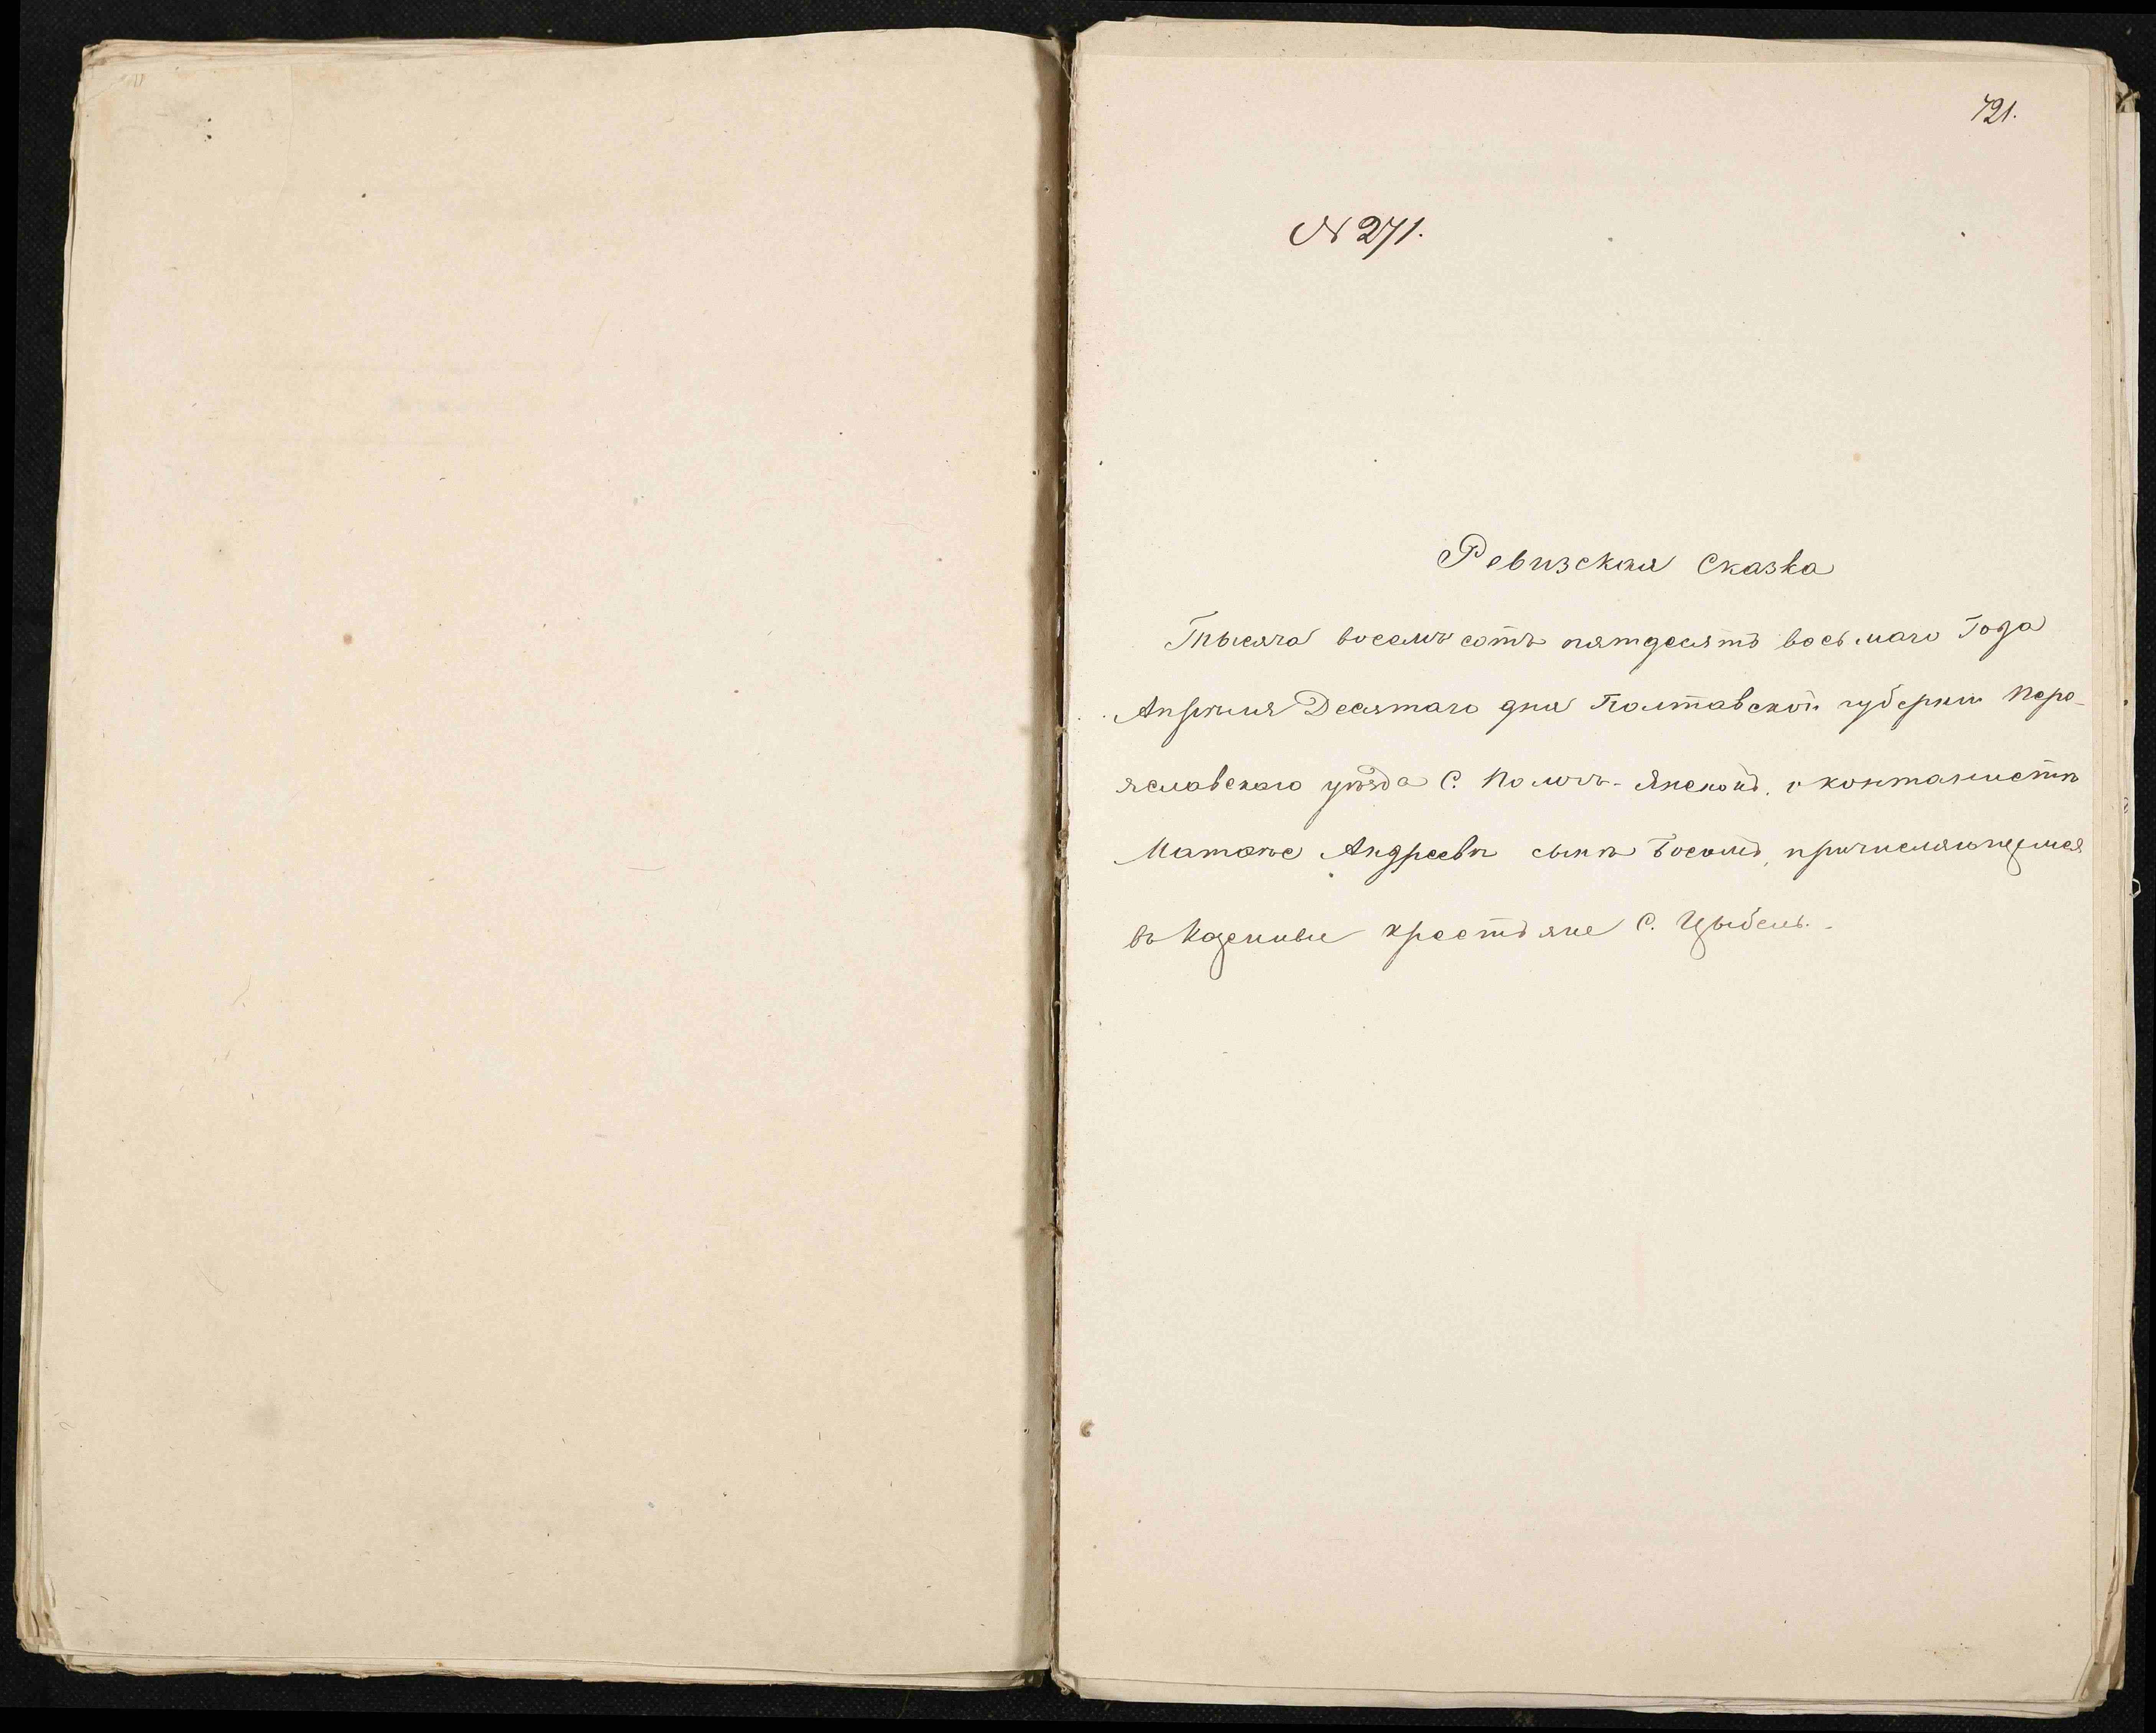 721.
№ 271.
Ревизская Сказка
Тысяча восемъ сотъ пятдесятъ восьмаго Года
Апреля Десятаго дня Полтавской губернии Пере-
яславскаго уезда С. о кантанистъ
Андреевъ сынъ Босомъ, причисляющемся
въ Казенные крестьяне С. Цыбель.